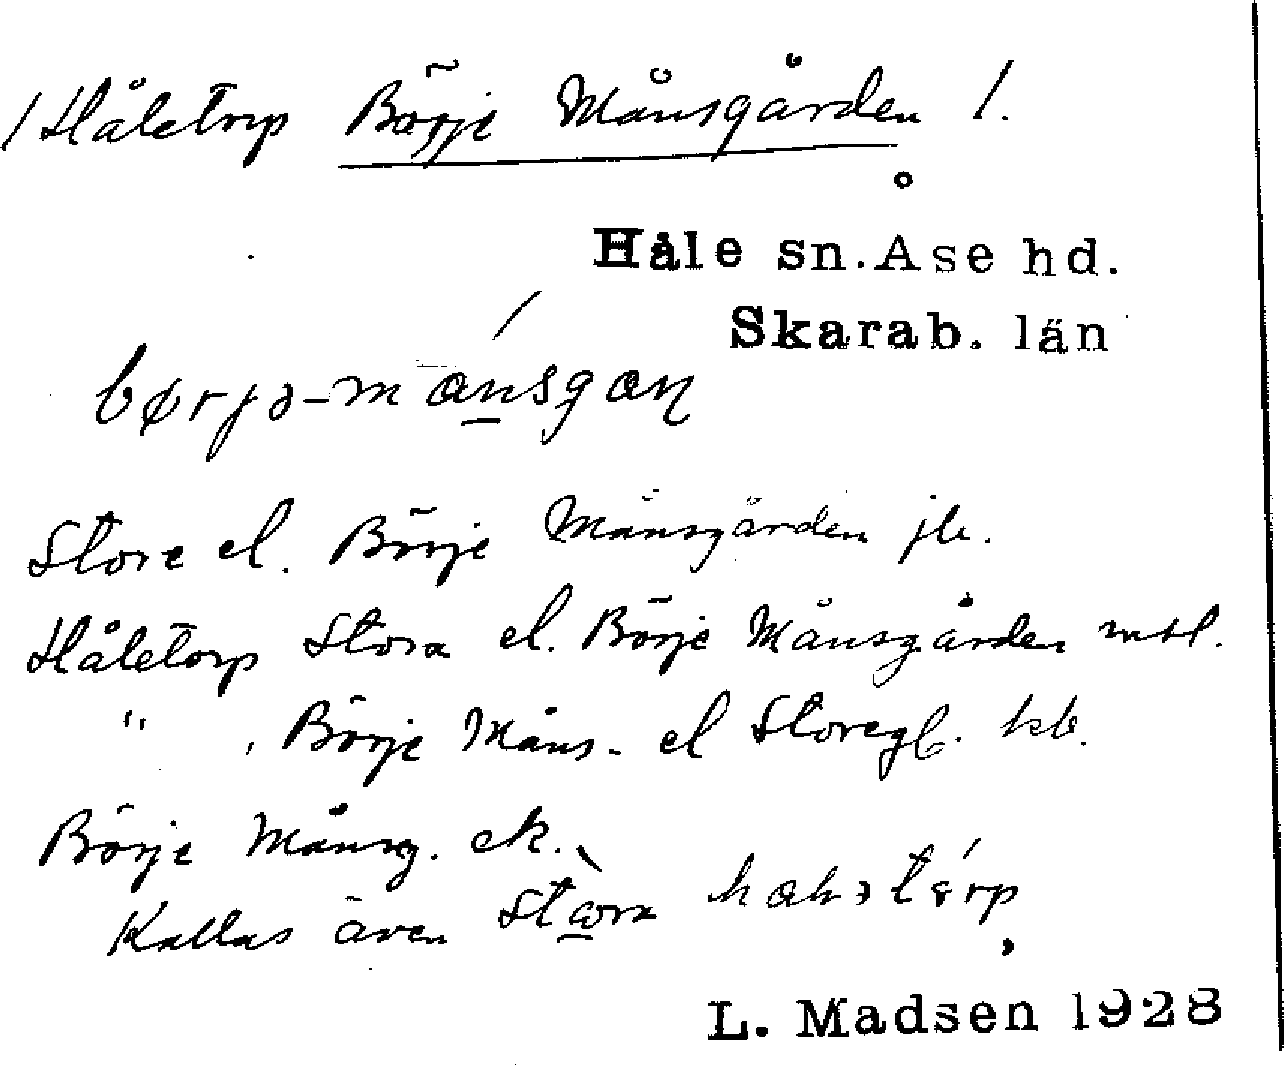 /Håletorp Börje Månsgården /.
Håle sn. Åse hd.
Skarab. län
børjə-månsgan
Store el. Börje Månsgården jb.
Håletorp Stora el. Börje Månsgården mtl.
" , Börje Måns- el Storegb. kb.
Börje Månsg. ek.
Kallas även
L. Madsen 1928